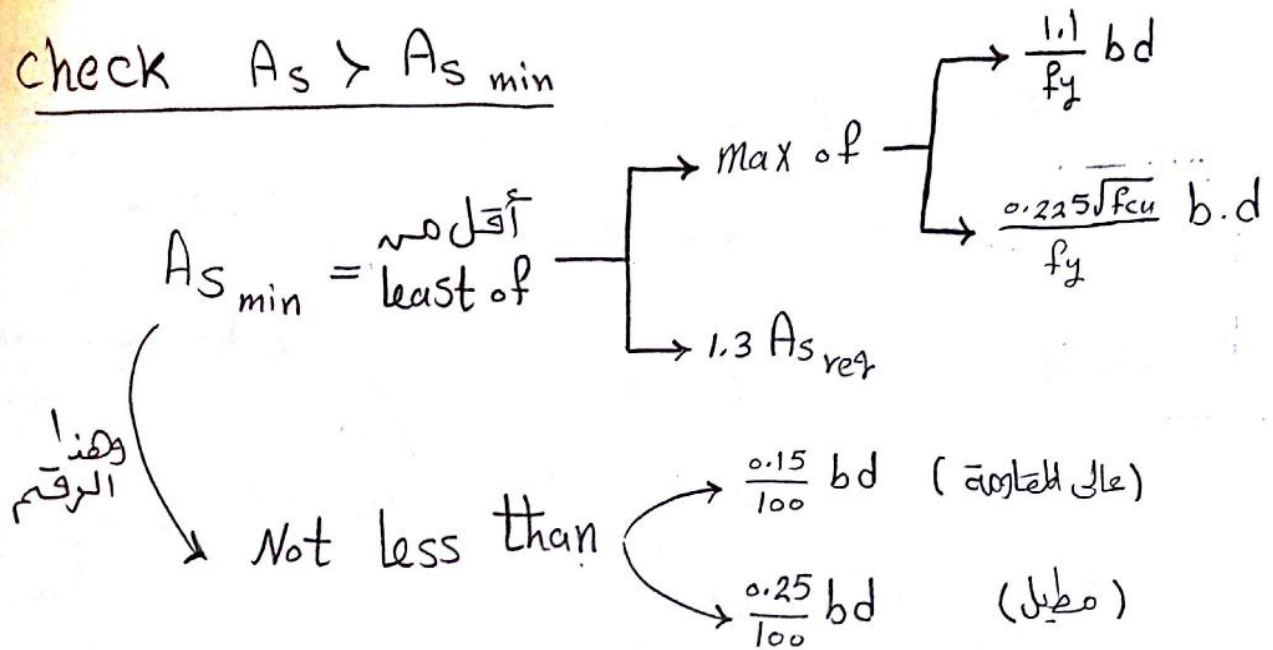 check As > As min
As min = أقل من least of
max of
1.1/fy bd
0.225√fcu/fy b.d
1.3 As req
وهذا الرقم
Not less than
0.15/100 bd (عالى المقاومة)
0.25/100 bd (مطيل)